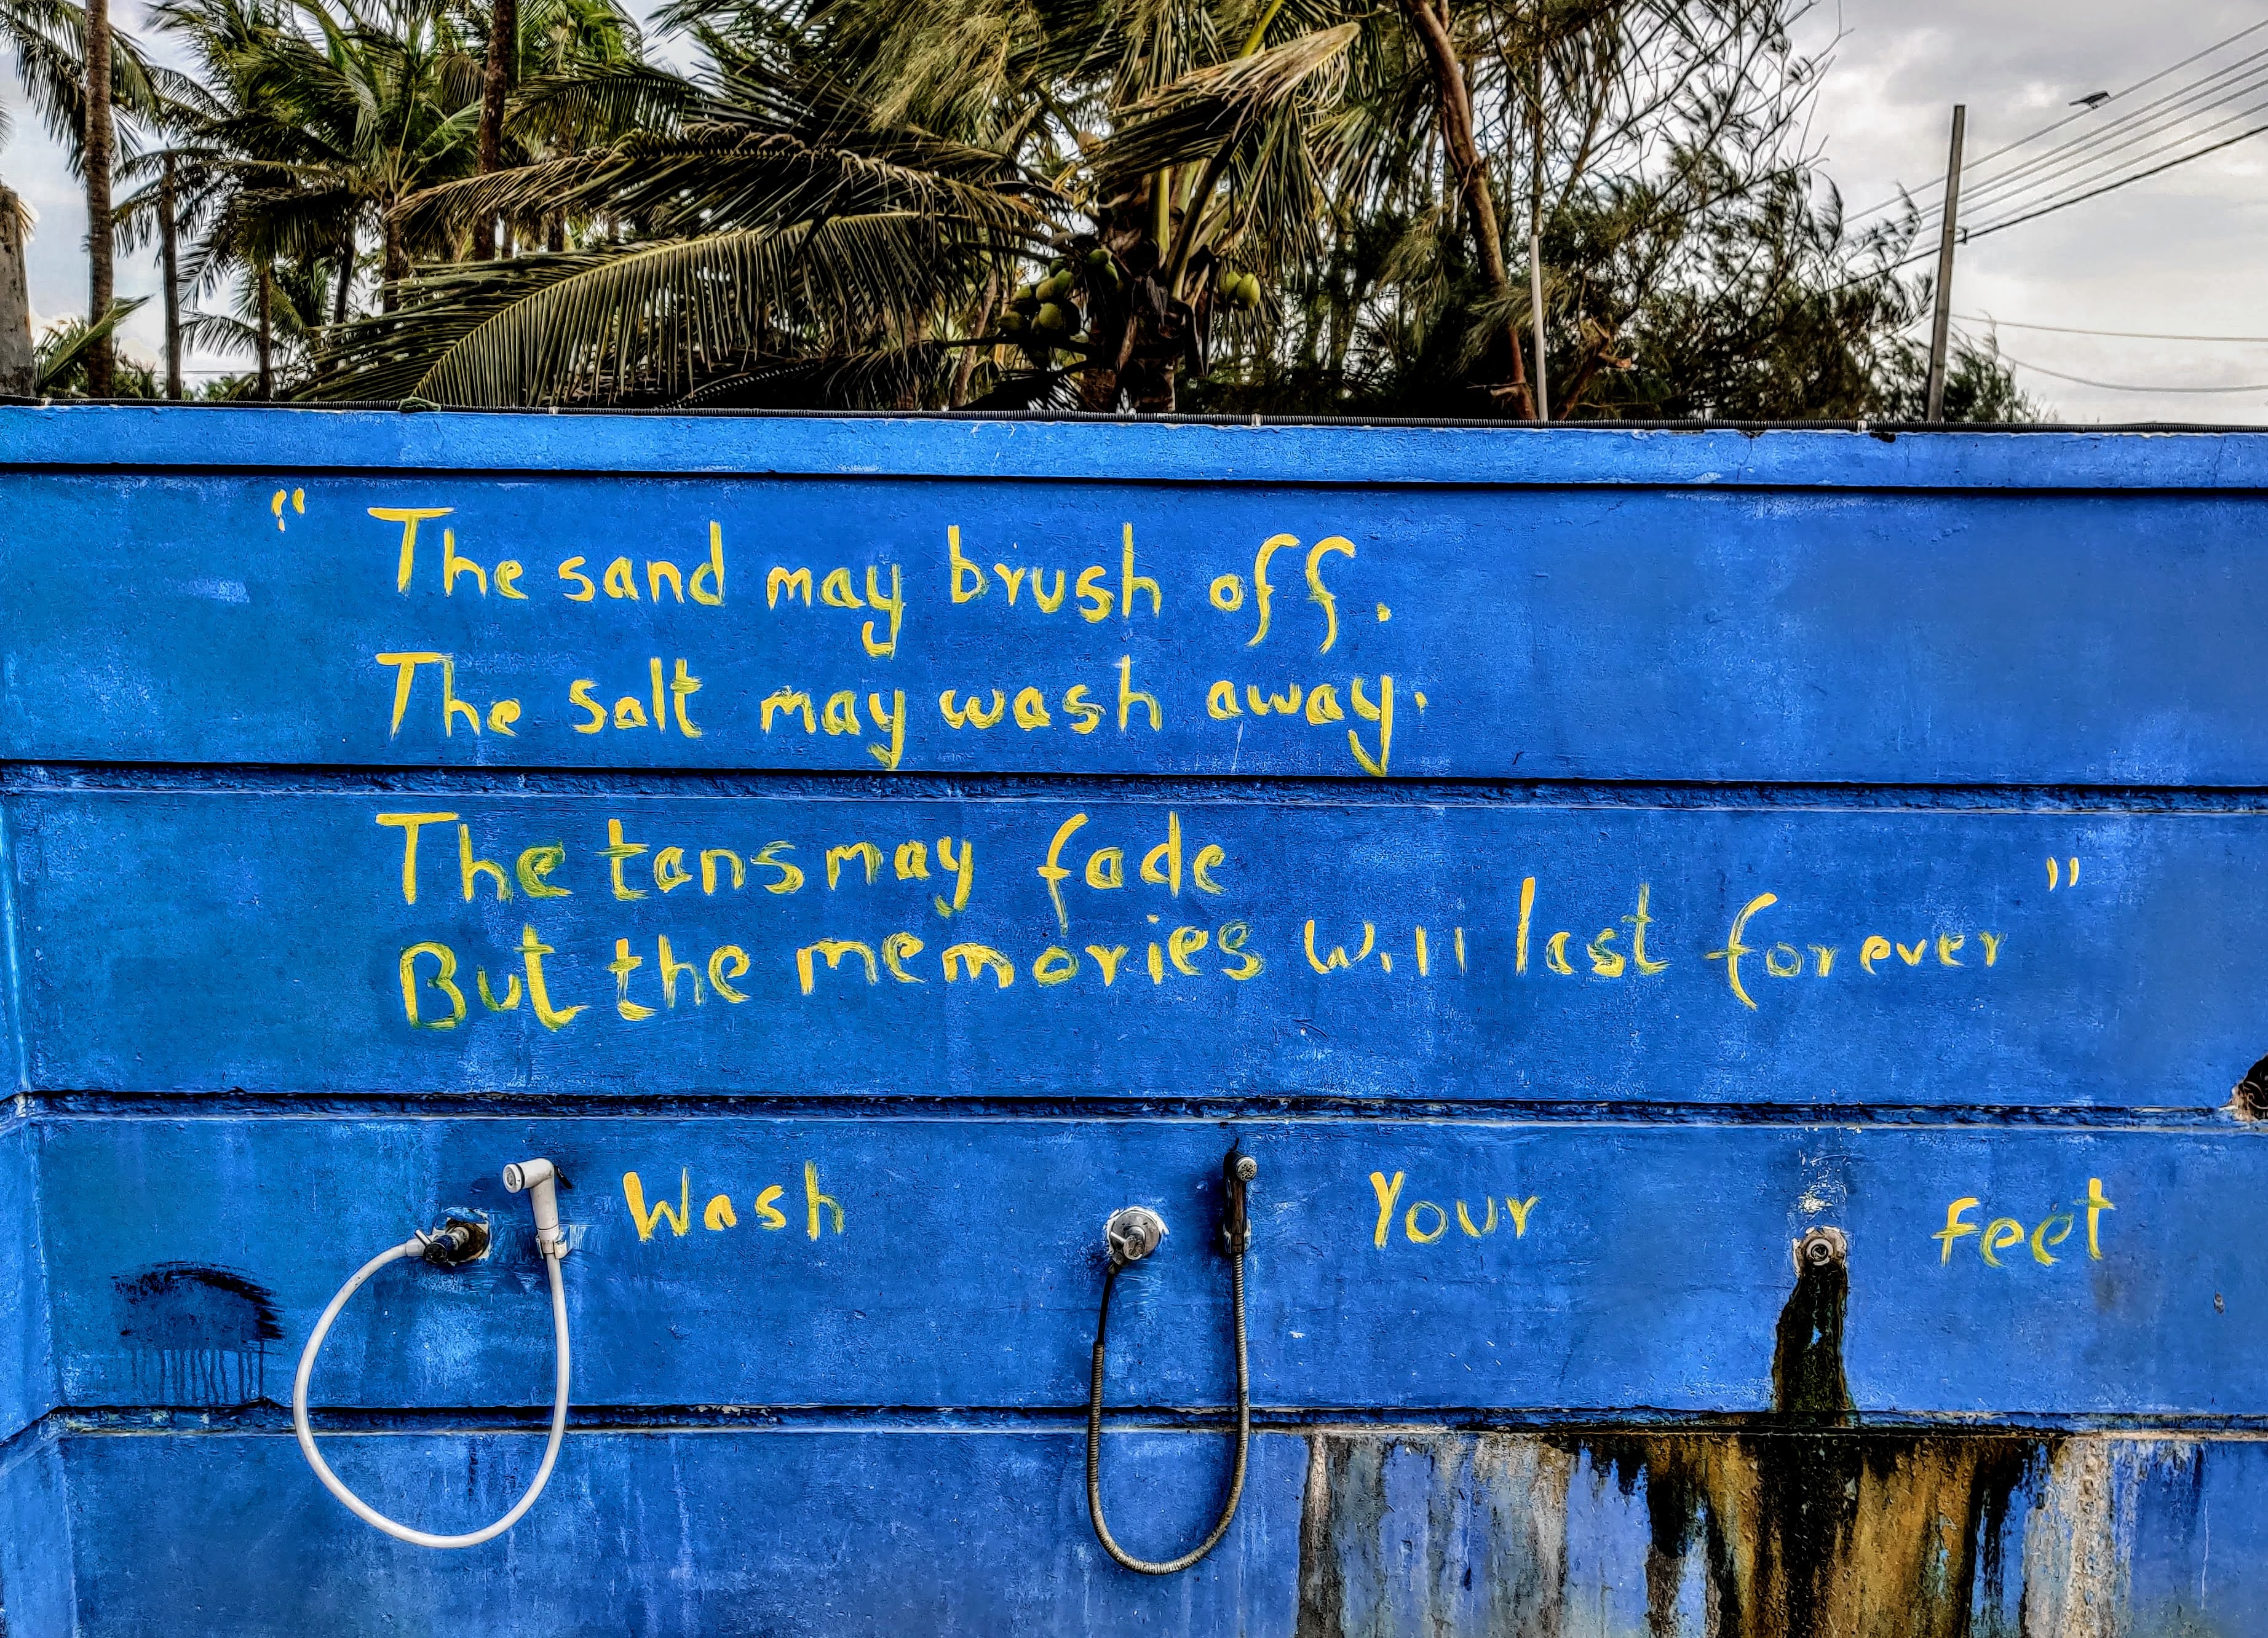 " The sand may brush off.
The salt may wash away.
The tans may fade
But the memories will last forever "
Wash Your feet